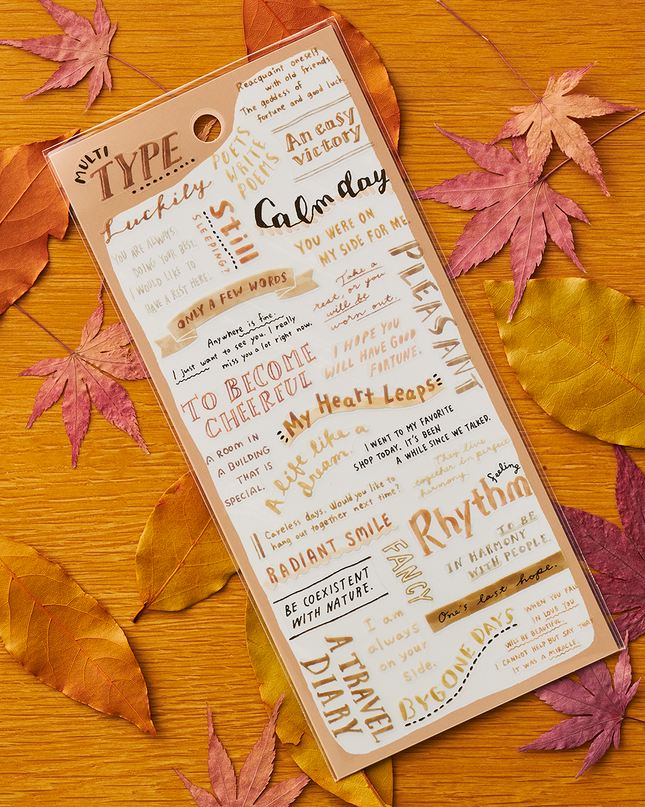 MULTI
TYPE
Reacquaint oneself
with old friends
The goddess of
fortune and good luck
POETS
WRITE
POEMS
An easy
victory
Luckily
Calm day
Still
SLEEPING?
YOU ARE ALWAYS
DOING YOUR BEST.
I WOULD LIKE TO
HAVE A REST HERE.
YOU WERE ON
MY SIDE FOR ME.
ONLY A FEW WORDS
Take a
rest, or you
will be
worn out.
PLEASANT
Anywhere is fine.
I just want to see you. I really
miss you a lot right now.
I HOPE YOU
WILL HAVE GOOD
FORTUNE.
TO BECOME
CHEERFUL
My Heart Leaps
A ROOM IN
A BUILDING
THAT IS
SPECIAL.
A life like a
dream.
I WENT TO MY FAVORITE
SHOP TODAY. IT'S BEEN
A WHILE SINCE WE TALKED.
They live
together in perfect
harmony.
feeling
Rhythm
Careless days. Would you like to
hang out together next time?
RADIANT SMILE
FANCY
TO BE
IN HARMONY
WITH PEOPLE.
BE COEXISTENT
WITH NATURE.
One's last hope.
I am
always
on your
side.
A TRAVEL
DIARY
BYGONE DAYS
WHEN YOU FALL
IN LOVE YOU
WILL BE BEAUTIFUL.
I CANNOT HELP BUT SAY THAT
IT WAS A MIRACLE.